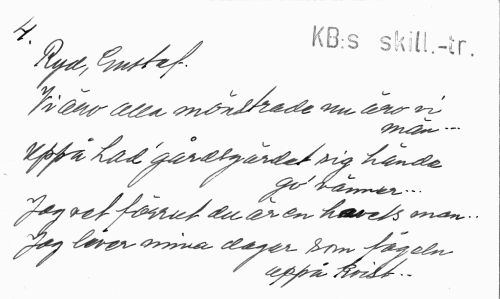 4.
KB:s skill.-tr.
Ryd, Gustaf.
Vi äro alla mönstrade nu äro vi
män...
Uppå Lad'gårdsgärdet sig hände
go' vänner...
Jag vet förrut du är en havets man..
Jag lever mina dagar som fågeln
uppå kvist..